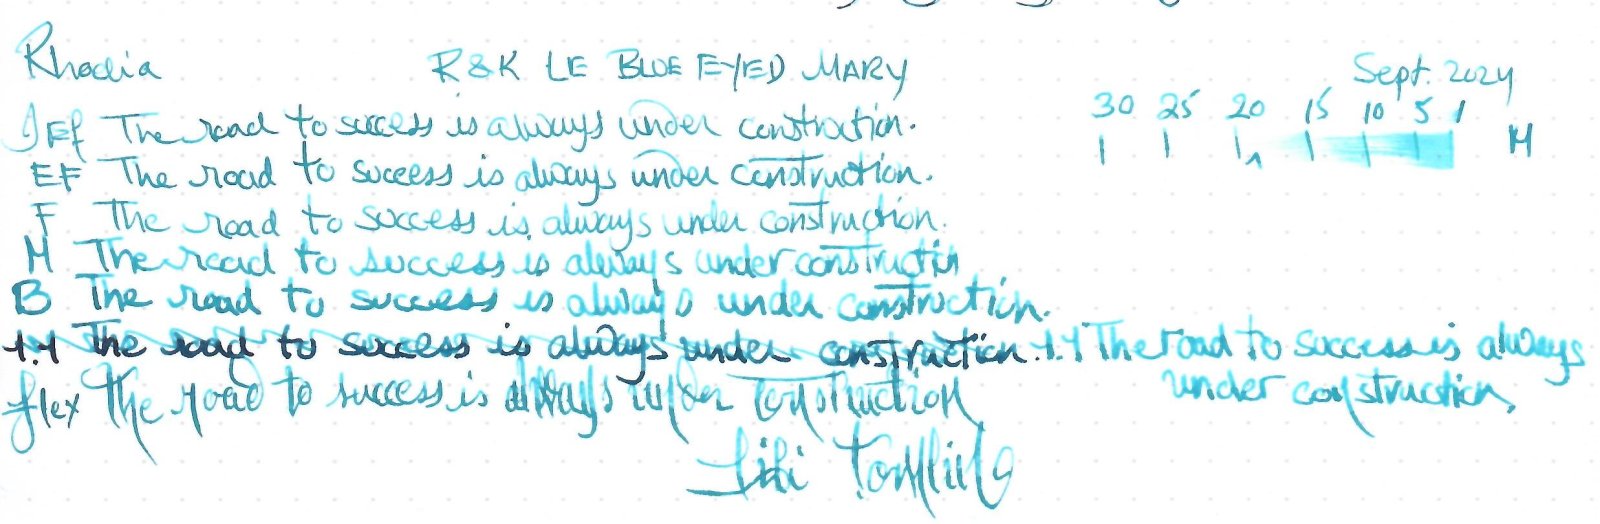 Rhodia R&K LE BLUE EYED MARY Sept. 2024
30 25 20 15 10 5 1 M
JEf The road to success is always under construction.
EF The road to success is always under construction.
F The road to success is always under construction.
M The road to success is always under constructin
B The road to success is always under construction.
1.1 The road to success is always under construction. 1.1 The road to success is always
under construction.
flex The road to success is always under construction
Lili Tomlin